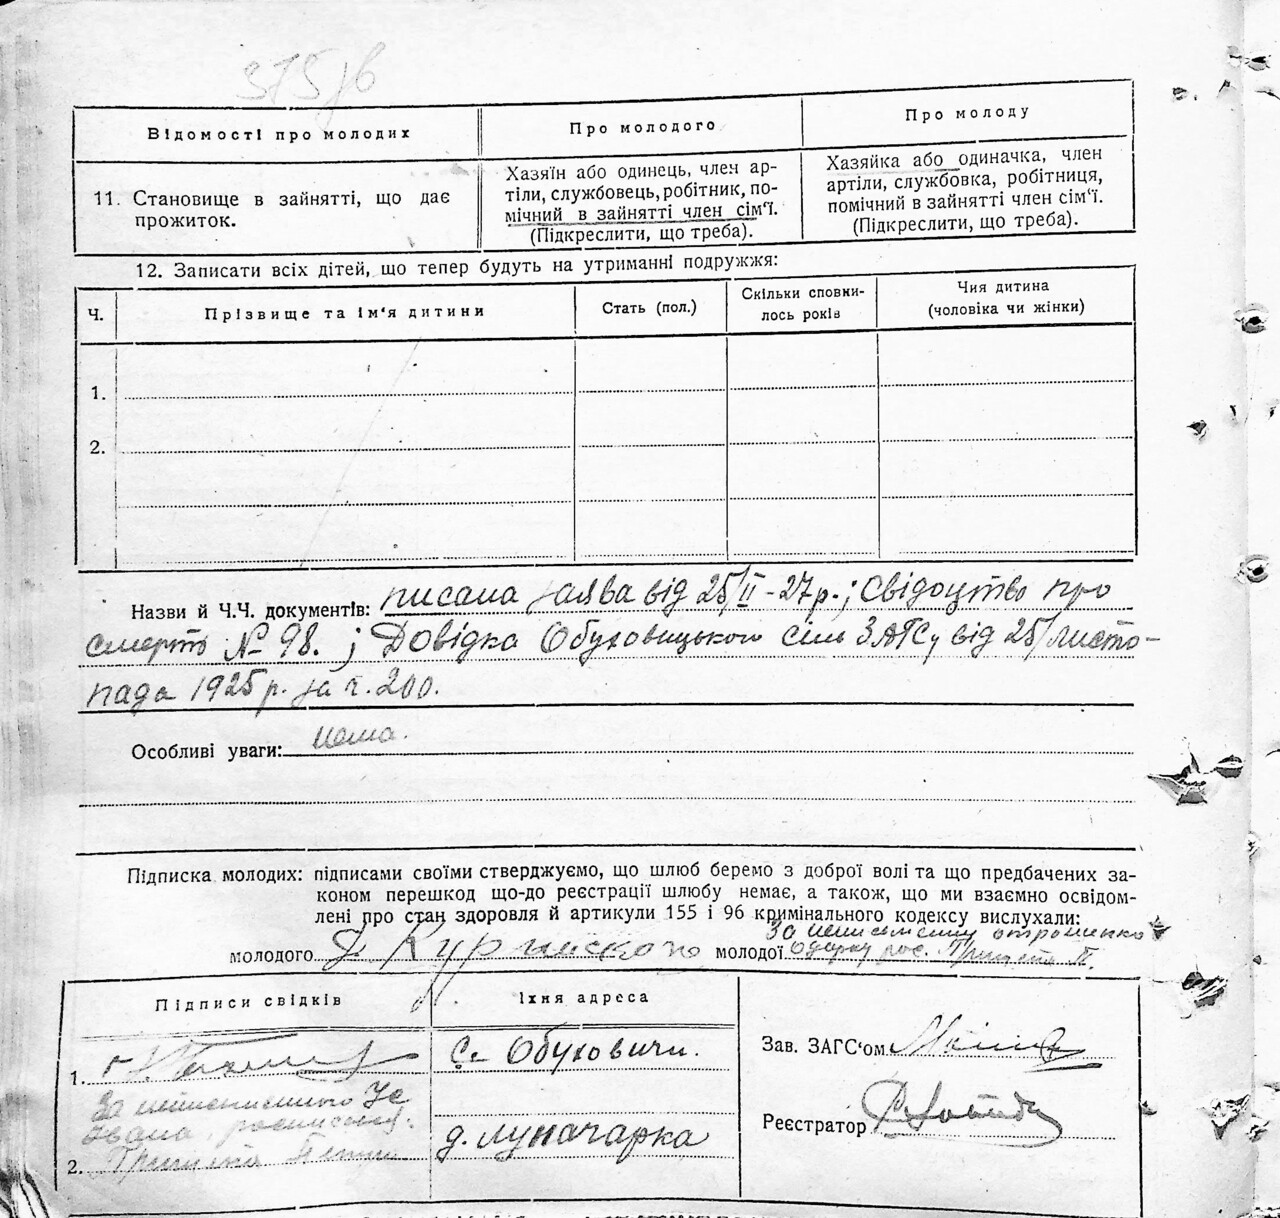 375/в
Відомості про молодих
Про молодого
Про молоду
11. Становище в зайнятті, що дає
прожиток.
Хазяїн або одинець, член ар-
тіли, службовець, робітник, по-
мічний в зайнятті член сім'ї.
(Підкреслити, що треба).
Хазяйка або одиначка, член
артіли, службовка, робітниця,
помічний в зайнятті член сім'ї.
(Підкреслити, що треба).
12. Записати всіх дітей, що тепер будуть на утриманні подружжя:
Ч.
Прізвище та ім'я дитини
Стать (пол.)
Скільки сповни-
лось років
Чия дитина
(чоловіка чи жінки)
1.
2.
Назви й Ч.Ч. документів: писана заява від 25/II-27р.; Свідоцтво про
смерть № 98. ; Довідка Обуховицького сіль ЗАГСу від 25/листо-
пада 1925 р. за ч. 200.
Особливі уваги: нема.
Підписка молодих: підписами своїми стверджуємо, що шлюб беремо з доброї волі та що предбачених за-
коном перешкод що-до реєстрації шлюбу немає, а також, що ми взаємно освідом-
лені про стан здоровля й артикули 155 і 96 кримінального кодексу вислухали:
молодого
молодої
Підписи свідків
Їхня адреса
1.
с. Обуховичи.
За неписменного
Івана
2.
д. Луначарка
Зав. ЗАГС'ом
Реєстратор